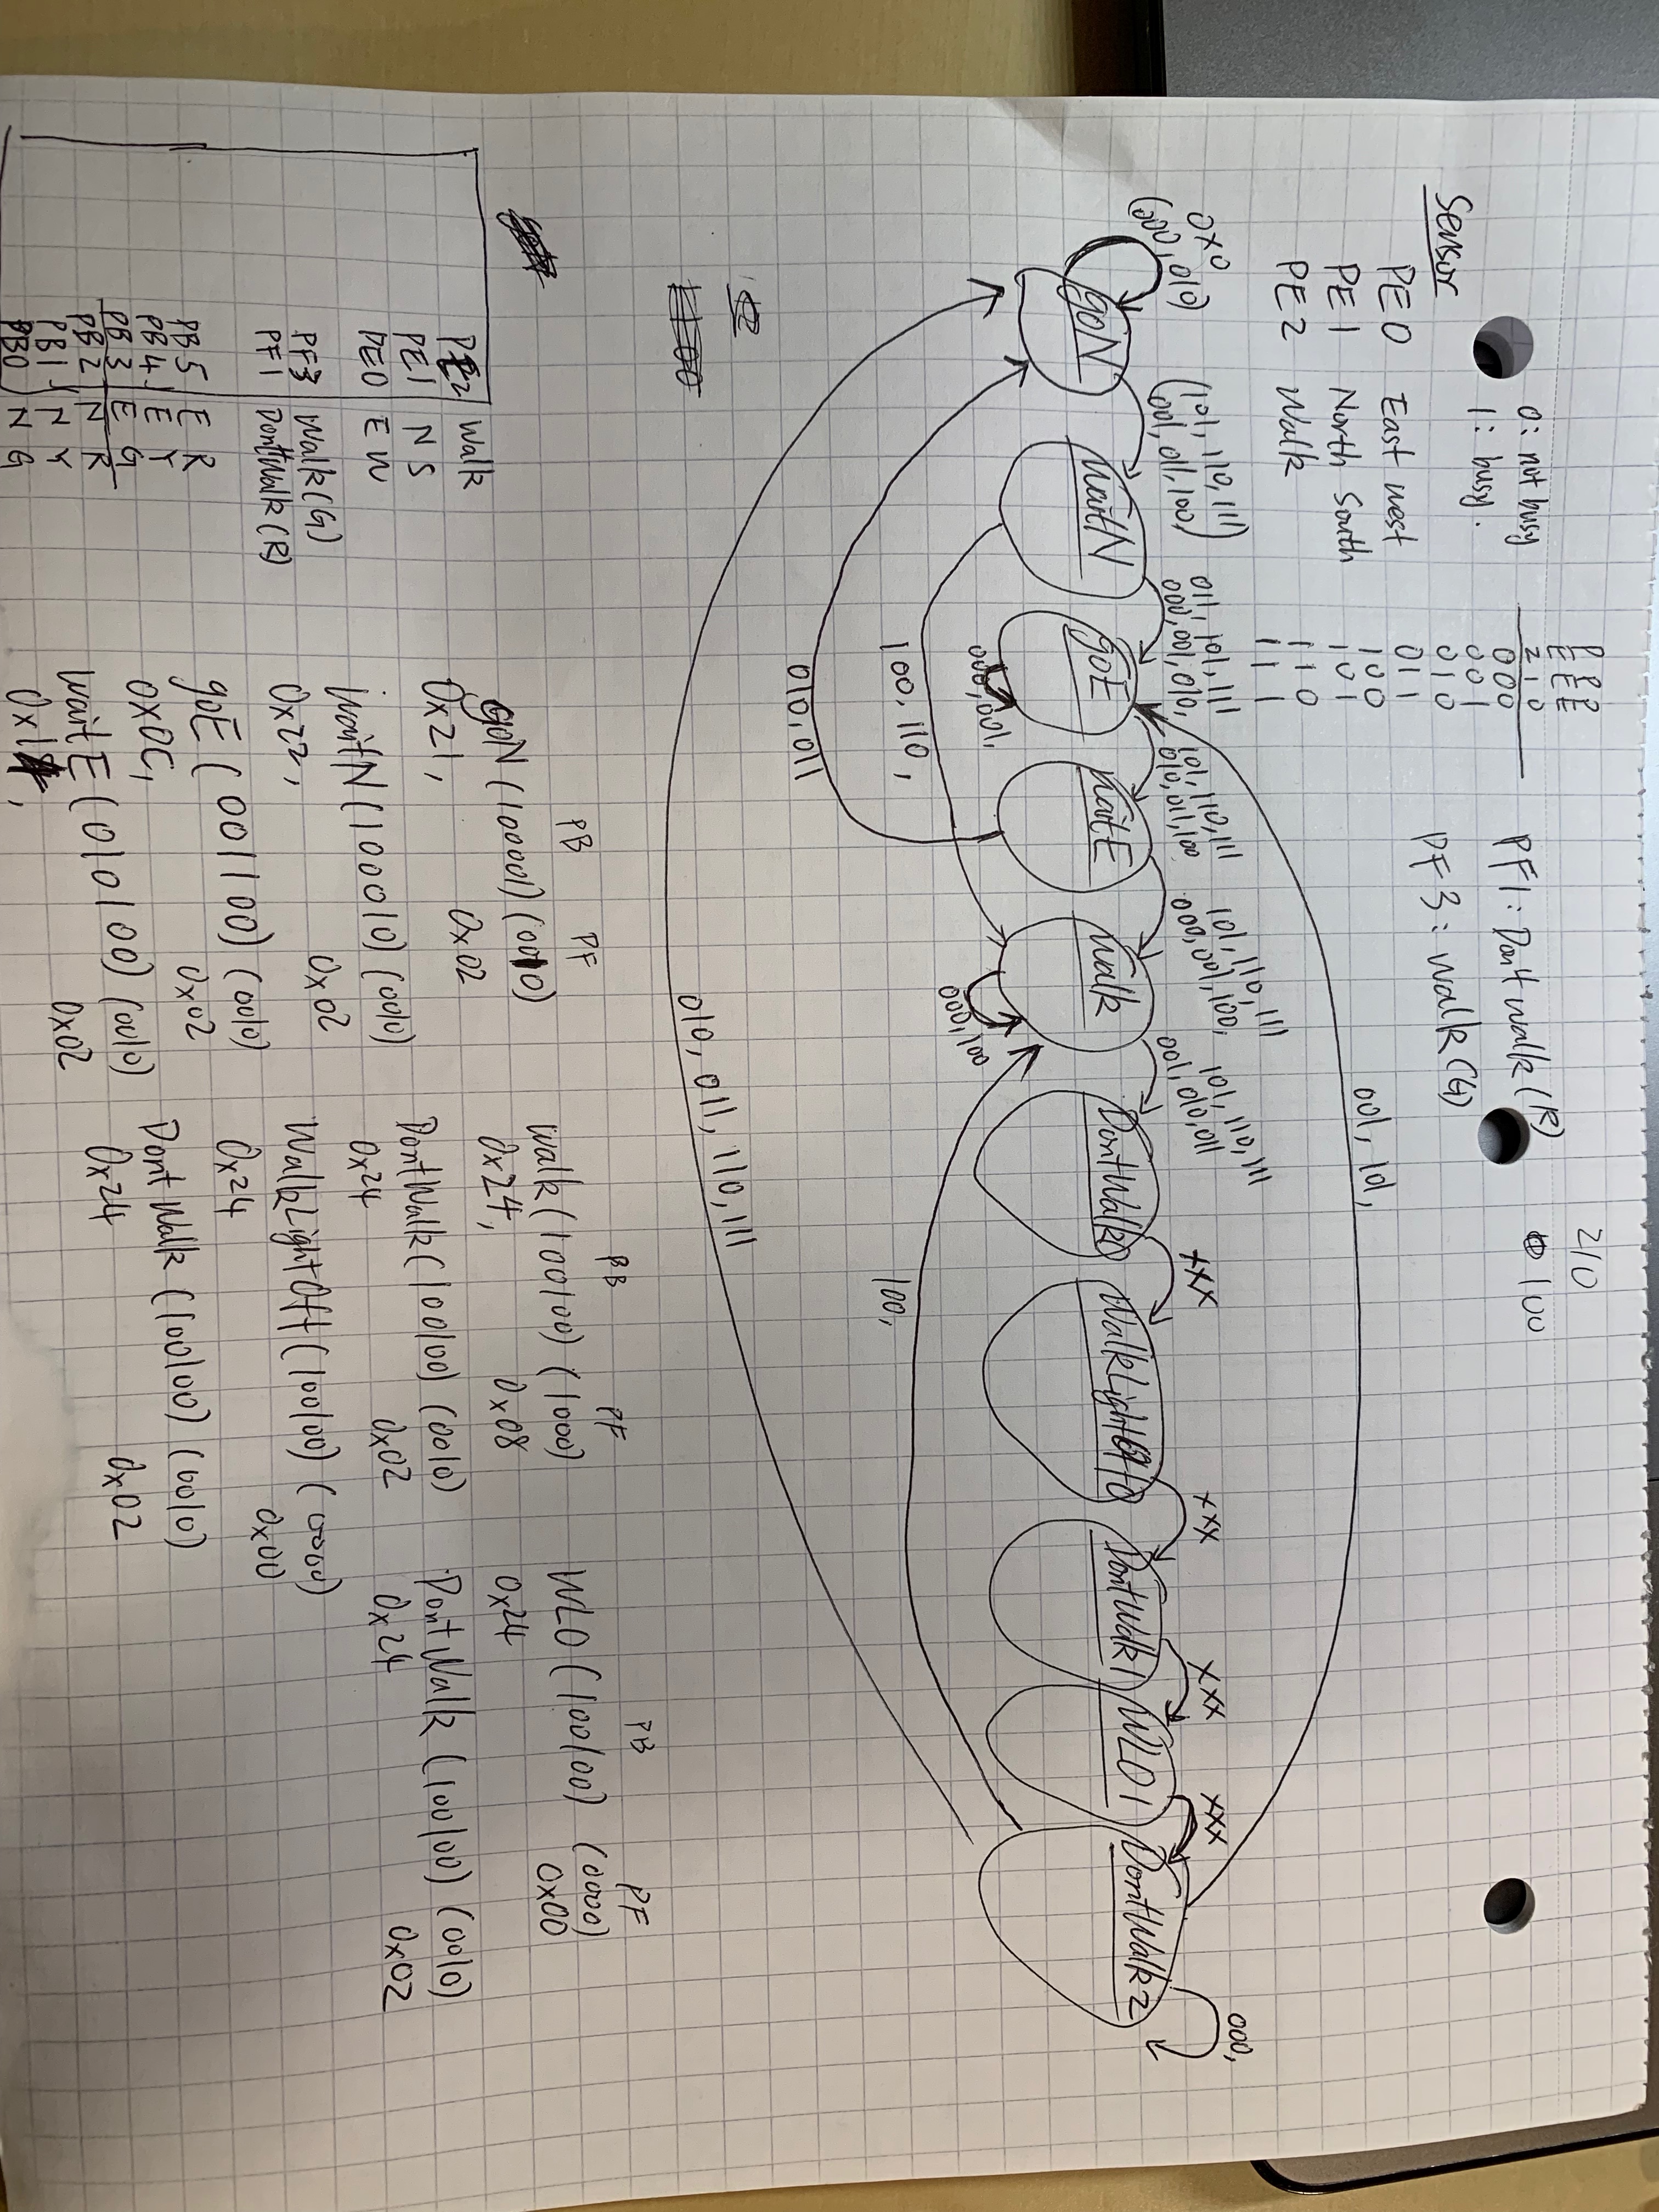 Sensor
0: not busy
1: busy.
PE0 East west
PE1 North South
PE2 Walk
PPP
EEE
210
000
001
010
011
100
101
110
111
PF1: Dont walk (R)
PF3: walk (G)
210
100
0x0
(000, 010)
(101, 110, 111)
(001, 011, 100)
011, 101, 111
000, 001, 010,
101, 110, 111
010, 011, 100
111, 011, 101
000, 001, 100,
111, 011, 101
110, 010, 100
001, 101,
xxx
xxx
xxx
xxx
000,
goN
waitN
goE
waitE
walk
DontWalk0
WalkLightOff0
DontWalk1
WLO1
DontWalk2
000, 001,
000, 001
100, 110,
010, 011
100,
010, 011, 110, 111
PE2 Walk
PE1 N S
PE0 E W
PF3 Walk (G)
PF1 DontWalk (R)
PB5 E R
PB4 E Y
PB3 E G
PB2 N R
PB1 N Y
PB0 N G
PB PF
goN (100001) (0010)
0x21, 0x02
waitN (100010) (0010)
0x22, 0x02
goE (001100) (0010)
0x0C, 0x02
waitE (010100) (0010)
0x02
PB PF
walk (100100) (1000)
0x24, 0x08
DontWalk (100100) (0010)
0x24 0x02
WalkLightOff (100100) (0000)
0x24 0x00
Dont Walk (100100) (0010)
0x24 0x02
PB PF
WLO (100100) (0000)
0x24 0x00
Dont Walk (100100) (0010)
0x24 0x02